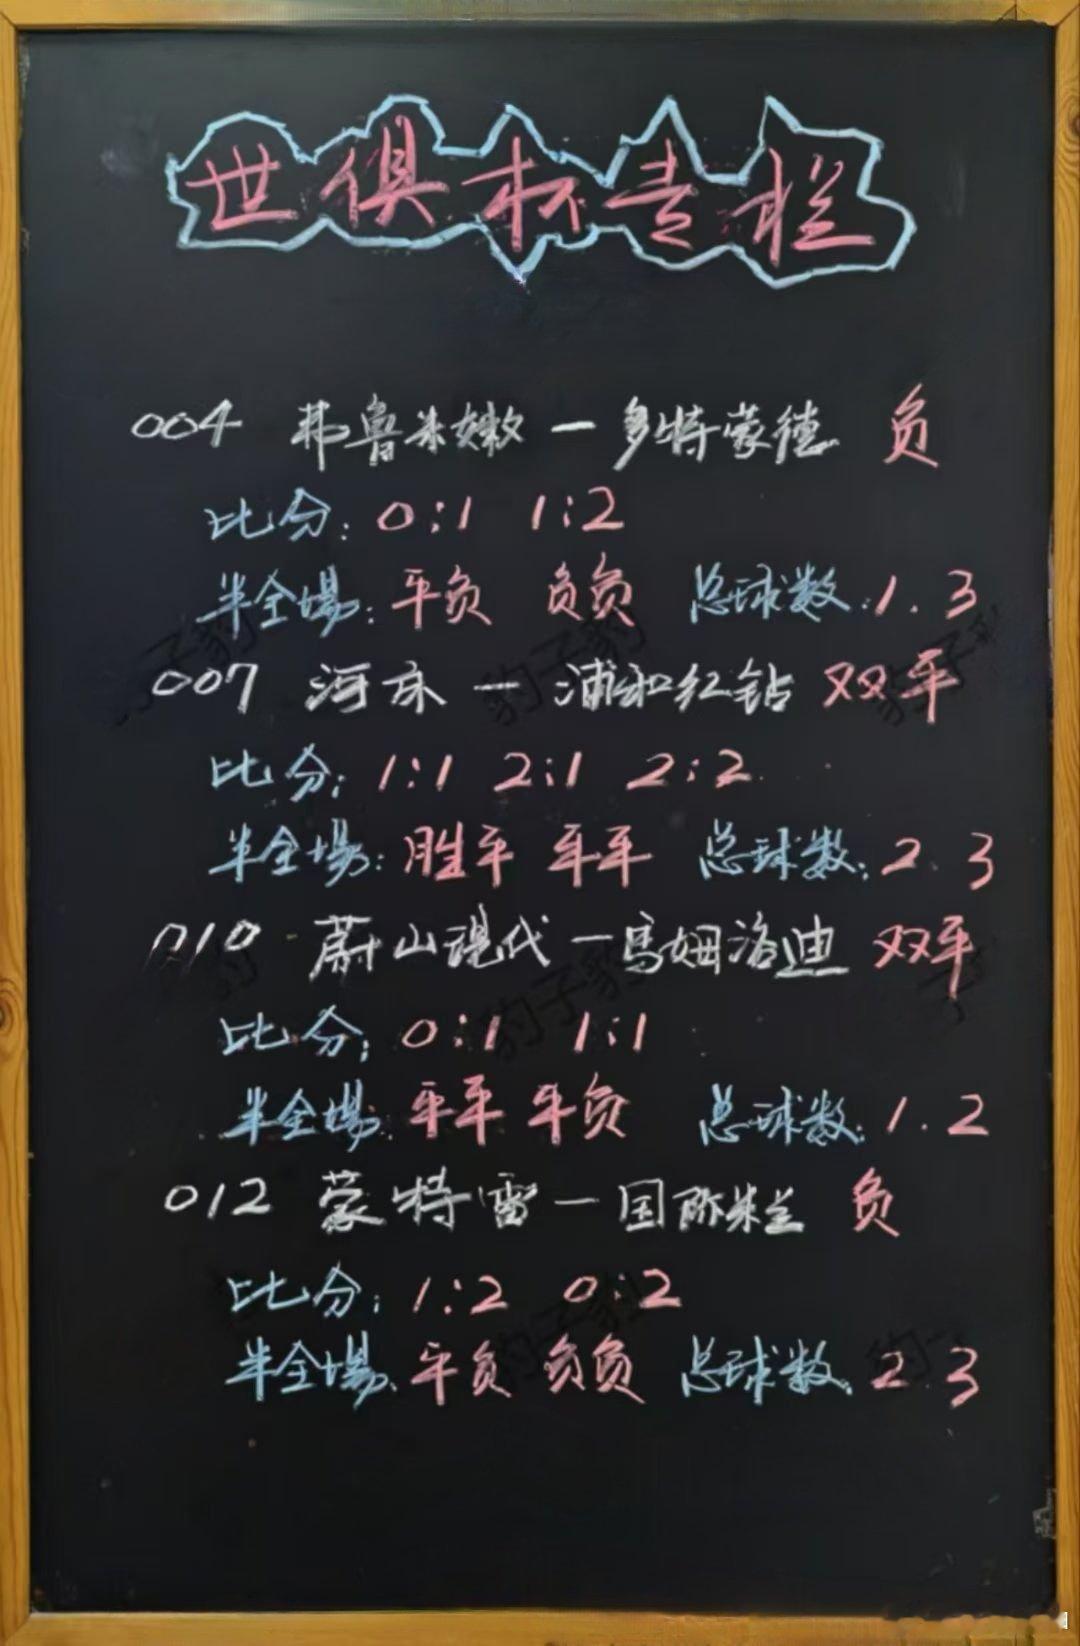 世俱杯专栏
004 弗鲁米嫩 — 多特蒙德 负
比分: 0:1 1:2
半全場: 平负 负负 总球数: 1. 3
007 河床 — 浦和红钻 双平
比分: 1:1 2:1 2:2
半全場: 胜平 平平 总球数: 2. 3
010 蔚山现代 — 马姆洛迪 双平
比分: 0:1 1:1
半全場: 平平 平负 总球数: 1. 2
012 蒙特雷 — 国际米兰 负
比分: 1:2 0:2
半全場: 平负 负负 总球数: 2. 3